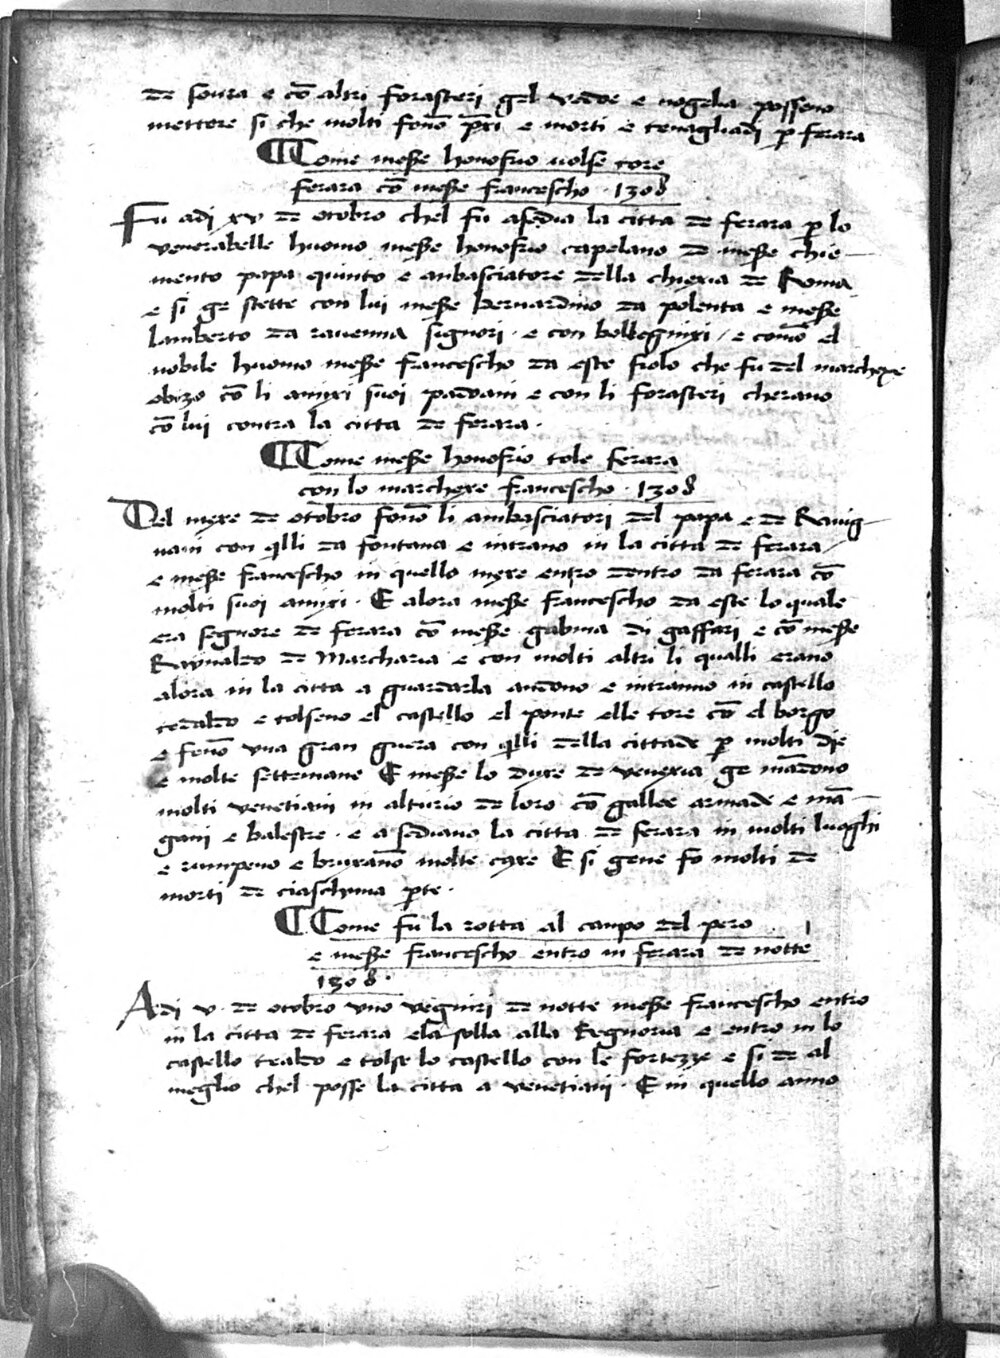 de soura e cõ altri forasteri gel vedde e nogelia posseno
mettere si che molti fonõ pꝛxi e morti e tenagliadi p ferara
Come messe honofrio uolse tore
ferara cõ messe francescho · 1308
Fu adi xv de otobro chel fu asedia la citta de ferara p lo
venerabelle huomo messe honofrio capelano de messe chie-
mento papa quinto e anbasciatore della chiexia de Roma
e si ge stette con lui messe bernardino da polenta e messe
lamberto da rauenna signori · e con bollegnixi / e comõ el
nobile huomo messe francescho da este fiolo che fu del marchexe
obizo cõ li amixi suoi padoani e con li forasteri cherano
cõ lui contra la citta de ferara ·
Come messe honofrio tole ferara
con lo marchexe francescho · 1308
Del mexe de otobro fonõ li ambasciatori del papa e de Rauig-
nani con q̃lli da fontana e intrano in la citta de ferara /
e messe francescho in quello mexe entro dentro da ferara cõ
molti suoi amixi · E alora messe francescho da este lo quale
era segnore de ferara cõ messe gabina di gaffari e cõ messe
Raynaldo de Marcharia e con molti altri li qualli erano
alora in la citta a guardarla andono e intranno in castello
tedaldo e tolseno el castello el ponte elle tore cõ el borgo
e fenõ vna gran guera con q̃lli della cittade p molti die
e molte settemane E messe lo duxe de venexia ge mãdono
molti venetiani in alturio de loro cõ gallee armade e mã-
gani e balestre · e asediano la citta de ferara in molti luoghi
e rumpeno e bruxanõ molte caxe E si gene fo molti de
morti de ciaschuna pte ·
Come fu la rotta al canpo del pero
e messe francescho entro in ferara de notte
1308 ·
Adi v · de otobro vno vegniri de notte messe francescho entro
in la citta de ferara ela solla alla Regnoria e entro in lo
castello tealdo e tolse lo castello con le fortezze e si de al
meglio chel posse la citta a venetiani · E in quello anno